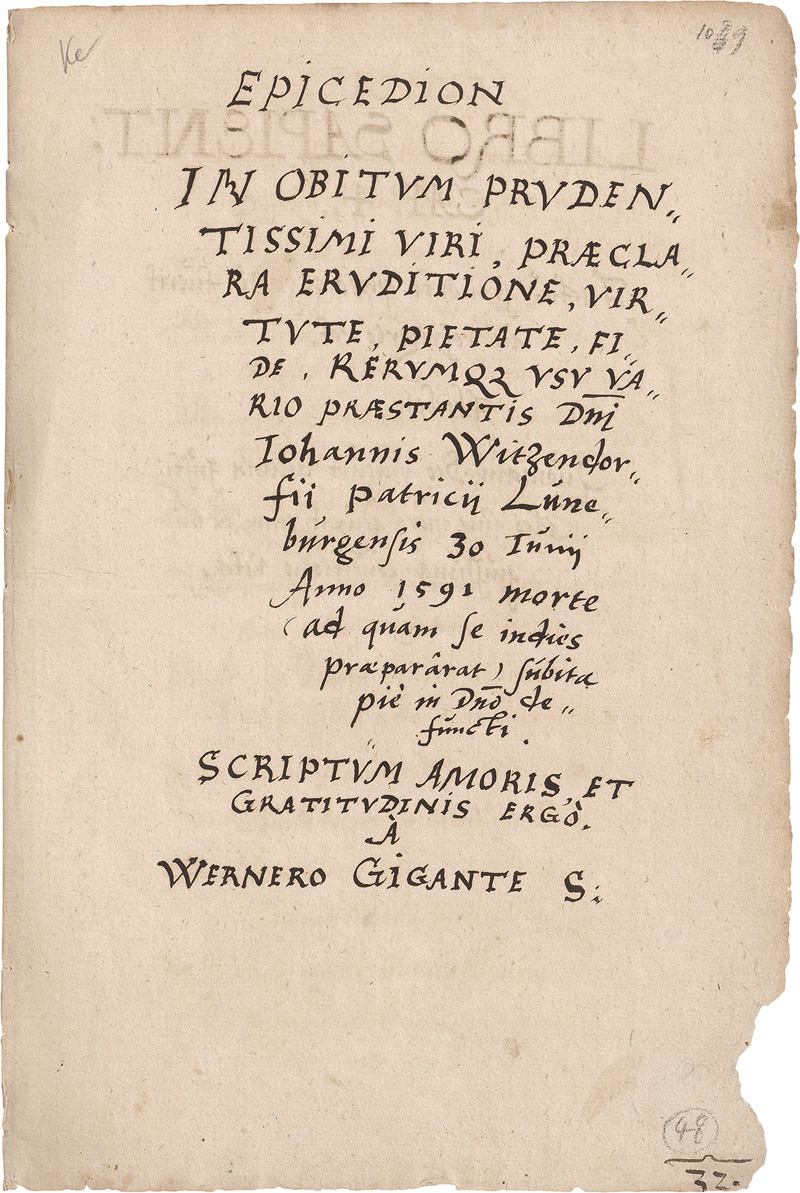 Ke
1089
EPICEDION
IN OBITVM PRVDEN„
TISSIMI VIRI, PRÆCLA„
RA ERVDITIONE, VIR„
TVTE, PIETATE, FI„
DE, RERVMQꝫ VSV VA„
RIO PRÆSTANTIS Dn̅i
Iohannis Witzendor„
fii Patricij Lúne„
búrgensis 30 Iúnij
Anno 1591 morte
(ad quàm se indies
præparârat) súbita
piè in Dn̅o de„
fúncti.
SCRIPTVM AMORIS, ET
GRATITVDINIS ERGÒ.
À
WERNERO GIGANTE S:
48
32.